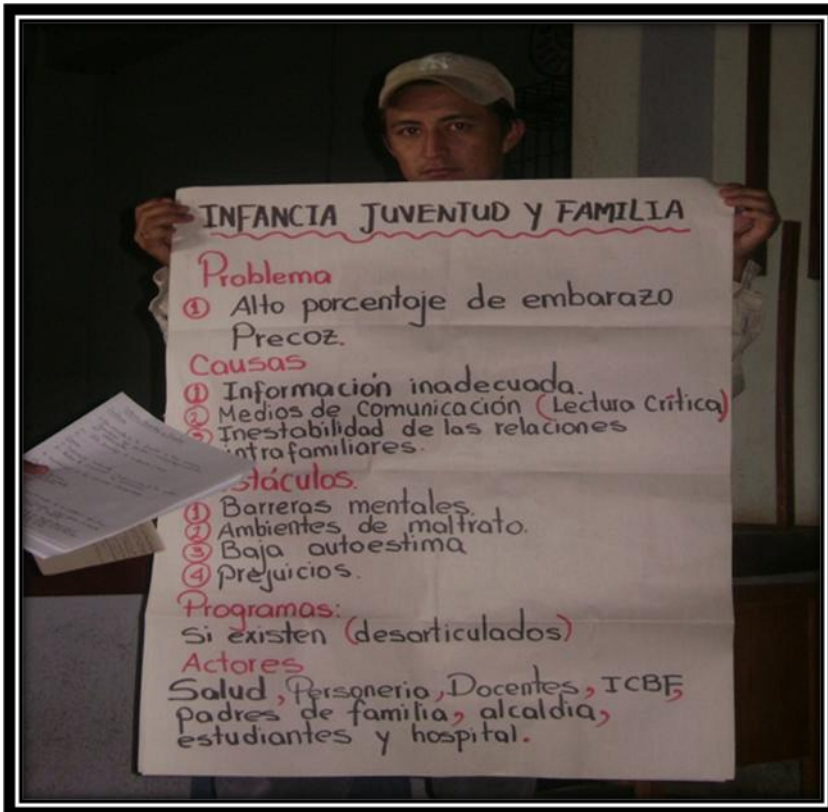 INFANCIA JUVENTUD Y FAMILIA
Problema
① Alto porcentaje de embarazo
Precoz.
Causas
① Información inadecuada.
② Medios de comunicación (Lectura Crítica)
③ Inestabilidad de las relaciones
intrafamiliares.
stáculos.
① Barreras mentales.
② Ambientes de maltrato.
③ Baja autoestima
④ prejuicios.
Programas:
Si existen (desarticulados)
Actores
Salud, Personeria, Docentes, ICBF,
padres de familia, alcaldia,
estudiantes y hospital.